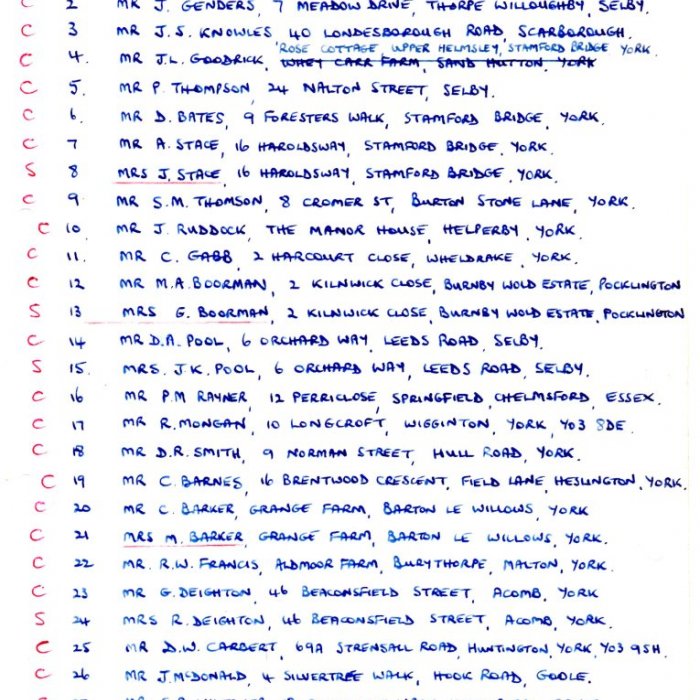 C 2 MR J. GENDERS, 7 MEADOW DRIVE, THORPE WILLOUGHBY, SELBY.
C 3 MR J.S. KNOWLES 40 LONDESBOROUGH ROAD, SCARBOROUGH.
'ROSE COTTAGE UPPER HELMSLEY, STAMFORD BRIDGE YORK.
C 4. MR J.L. GOODRICK, WHEY CARR FARM, SAND HUTTON, YORK
C 5. MR P. THOMPSON, 24 NALTON STREET, SELBY.
C 6. MR D. BATES, 9 FORESTERS WALK, STAMFORD BRIDGE, YORK.
C 7 MR A. STACE, 16 HAROLDSWAY, STAMFORD BRIDGE, YORK.
S 8 MRS J. STACE, 16 HAROLDSWAY, STAMFORD BRIDGE, YORK.
C 9 MR S.M. THOMSON, 8 CROMER ST, BURTON STONE LANE, YORK.
C 10 MR J. RUDDOCK, THE MANOR HOUSE, HELPERBY, YORK.
C 11. MR C. GABB, 2 HARCOURT CLOSE, WHELDRAKE, YORK.
C 12 MR M.A. BOORMAN, 2 KILNWICK CLOSE, BURNBY WOLD ESTATE, POCKLINGTON
S 13 MRS G. BOORMAN, 2 KILNWICK CLOSE, BURNBY WOLD ESTATE, POCKLINGTON
C 14 MR D.A. POOL, 6 ORCHARD WAY, LEEDS ROAD, SELBY.
S 15. MRS. J.K. POOL, 6 ORCHARD WAY, LEEDS ROAD, SELBY.
C 16 MR P.M RAYNER, 12 PERRICLOSE, SPRINGFIELD, CHELMSFORD, ESSEX.
C 17 MR R. MONGAN, 10 LONGCROFT, WIGGINTON, YORK, YO3 8DE.
C 18 MR D.R. SMITH, 9 NORMAN STREET, HULL ROAD, YORK.
C 19 MR C. BARNES, 16 BRENTWOOD CRESCENT, FIELD LANE, HESLINGTON, YORK.
C 20 MR C. BARKER, GRANGE FARM, BARTON LE WILLOWS, YORK
C 21 MRS M. BARKER, GRANGE FARM, BARTON LE WILLOWS, YORK.
C 22 MR. R.W. FRANCIS, ALDMOOR FARM, BURYTHORPE, MALTON, YORK.
C 23 MR G. DEIGHTON, 46 BEACONSFIELD STREET, ACOMB, YORK
S 24 MRS R. DEIGHTON, 46 BEACONSFIELD STREET, ACOMB, YORK.
C 25 MR D.W. CARBERT, 69A STRENSALL ROAD, HUNTINGTON, YORK, YO3 9SH.
C 26 MR J. McDONALD, 4 SILVERTREE WALK, HOOK ROAD, GOOLE.